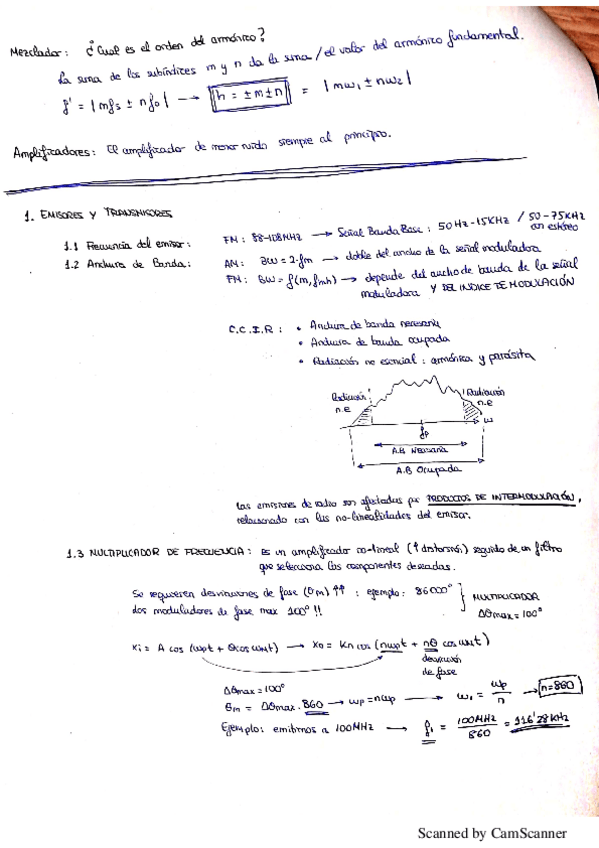 Mezclador: ¿Cual es el orden del armónico?
La suma de los subíndices m y n da la suma / el valor del armónico fundamental.
f' = |mfs ± nfo| → h = ±m±n = |mw1 ± nw2|
Amplificadores: El amplificador de menor ruido siempre al principio.
1. EMISORES Y TRANSMISORES
1.1 Frecuencia del emisor: FM: 88-108MHz → Señal Banda Base: 50Hz-15KHz / 50-75KHz
con estéreo
1.2 Anchura de Banda: AM: BW = 2·fm → doble del ancho de la señal moduladora
FM: BW = f(m, fmh) → depende del ancho de banda de la señal
moduladora Y DEL INDICE DE MODULACIÓN
C.C.I.R: • Anchura de banda necesaria
• Anchura de banda ocupada
• Radiación no esencial: armónica y parásita
Radiación n.e
Radiación n.e
w
fp
A.B Necesaria
A.B Ocupada
Las emisiones de radio son afectadas por PRODUCTOS DE INTERMODULACIÓN,
relacionado con las no-linealidades del emisor.
1.3 MULTIPLICADOR DE FRECUENCIA: Es un amplificador no-lineal (↑ distorsión) seguido de un filtro
que selecciona las componentes deseadas.
Se requieren desviaciones de fase (θm) ↑↑ : ejemplo: 86000° } MULTIPLICADOR
dos moduladores de fase max 100° !! Δθmax = 100°
Xi = A cos (wpt + θcos wmt) → Xo = Kn cos (nwpt + nθ cos wmt)
desviación
de fase
Δθmax = 100°
θm = Δθmax · 860 → wp = nwp → w1 = wp/n → n=860
Ejemplo: emitimos a 100MHz → f1 = 100MHz/860 = 116'28KHz
Scanned by CamScanner